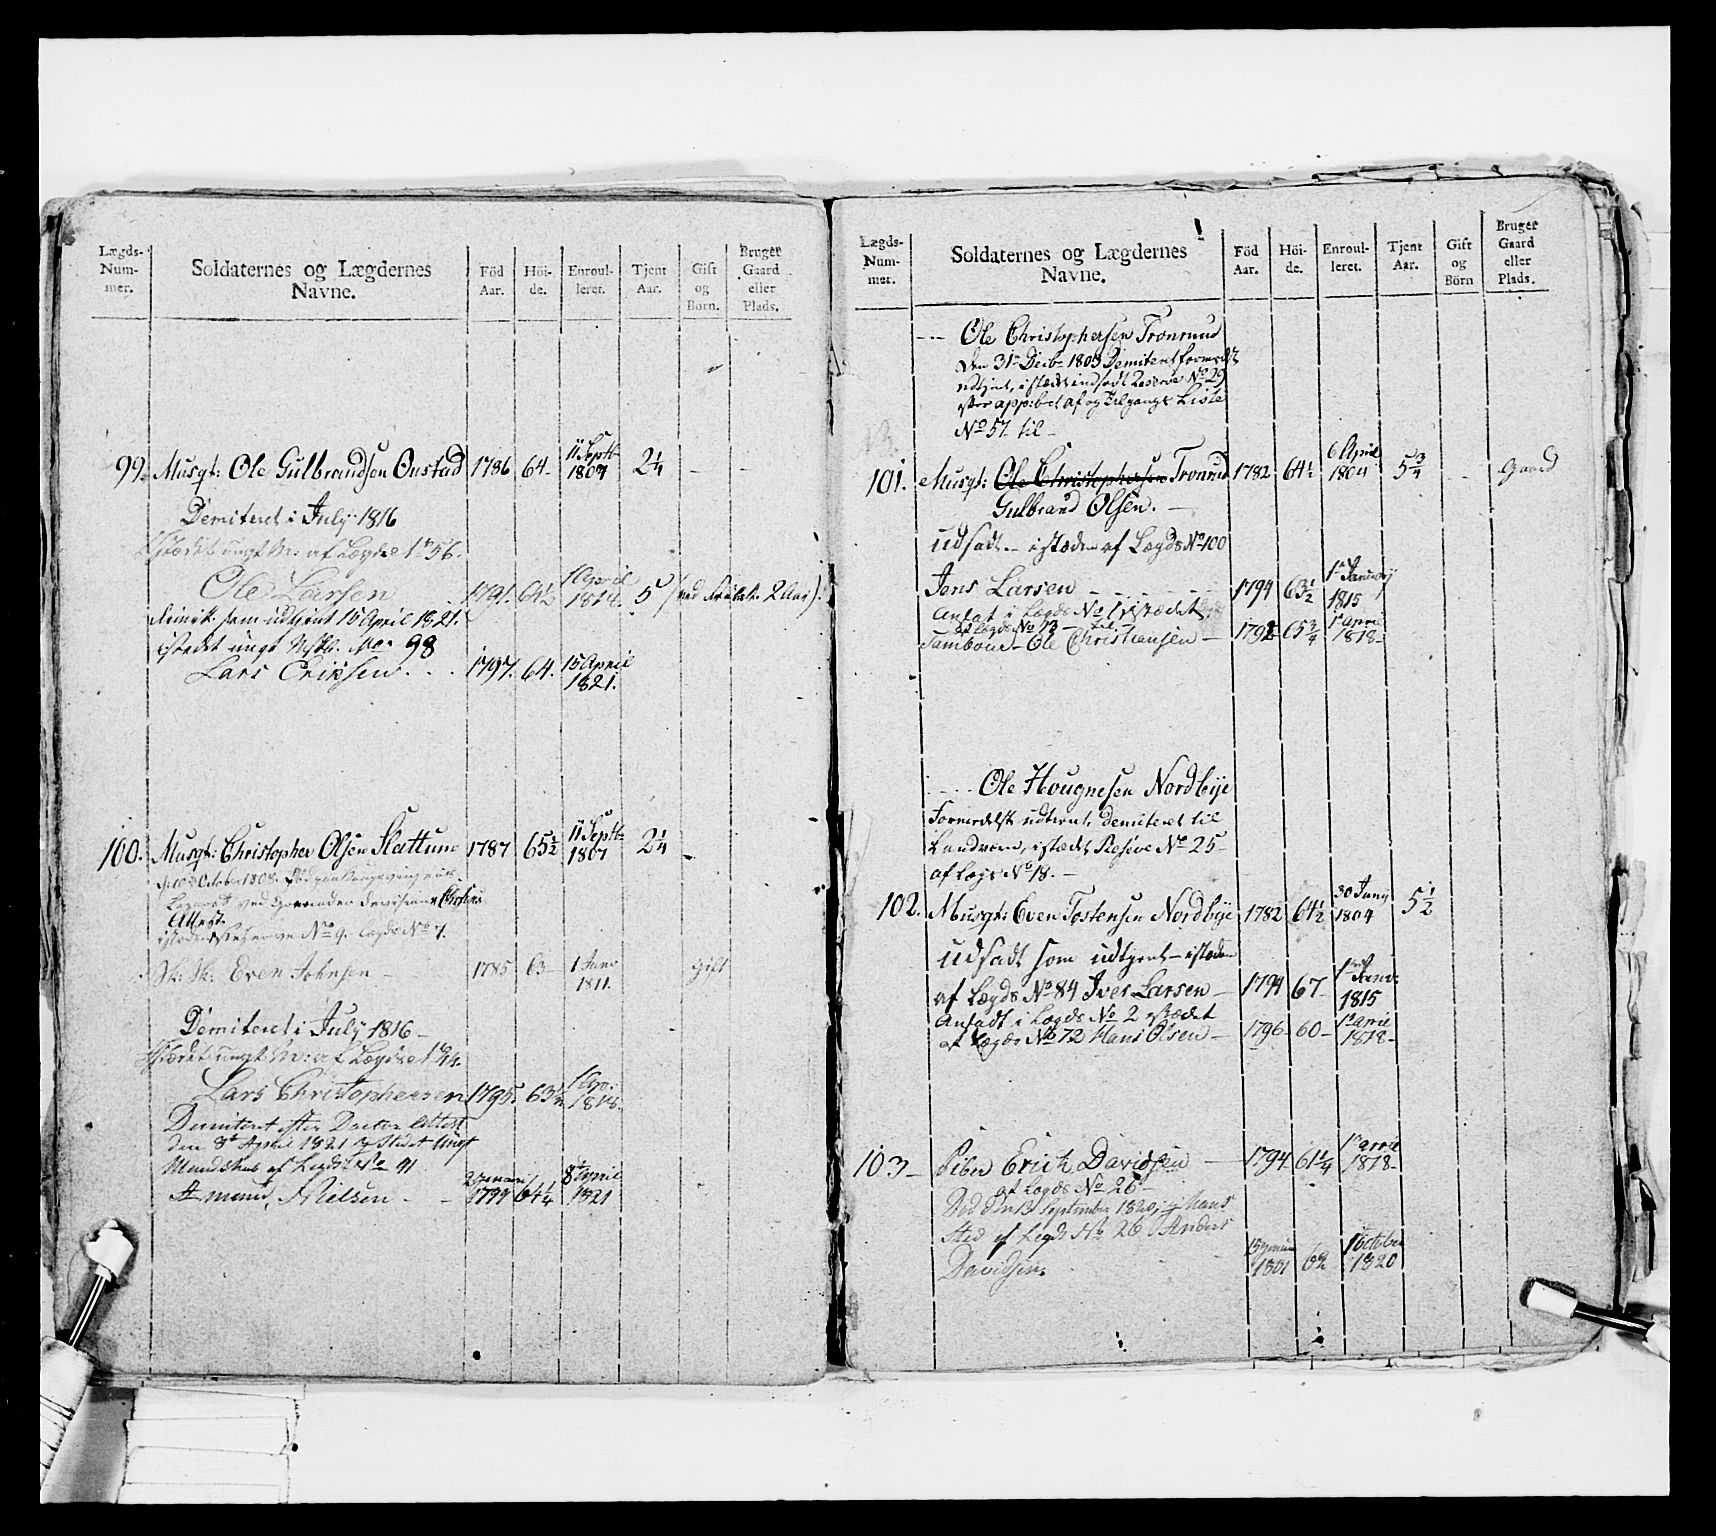 Lægds-
Num-
mer.
Soldaternes og Lægdernes
Navne.
Föd
Aar.
Höi-
de.
Enroul-
leret.
Tjent
Aar.
Gift
og
Börn.
Bruger
Gaard
eller
Plads.
99. Musqt: Ole Gulbrandsen Onstad 1786 64 - 11 Septb 1807 2 1/4 - -
Demiteret i July 1816
istædet ungt M: af Lægde No 56.
Ole Larsen 1791. 64 1/2 1 April 1818. 5 (ved 2 Aar).
som udtient 15 April 1821.
istedet ungt No 98
Lars Eriksen . . . 1797. 64. 15 April 1821.
100. Musqt: Christopher Olsen Slattum 1787 65 1/2 11 Septb 1807 2 1/4 -
October 1808.
Lazaret ved
Attest.
isteden Reserve No 9. Lægds No 7.
Sk: Sk: Even Johnsen - 1785 63 - 1 Janv 1811. Gift
Demiteret i July 1816 -
istædet ungt M: af Lægde No 44.
Lars Christophersen 1795. 63 1/2 1 Apr. 1818.
Demiteret efter Doctor Attest
den 8de April 1821 I Stedet Ungt
Mandskab af Legds No 41
Amund Nielsen . - 2 Januari 1799 64 1/4 8de April 1821
Lægds-
Num-
mer.
Soldaternes og Lægdernes
Navne.
Föd
Aar.
Höi-
de.
Enroul-
leret.
Tjent
Aar.
Gift
og
Börn
Bruger
Gaard
eller
Plads.
--- Ole Christophersen Tronrund
den 31te Decbr 1803 Demiteret formedelst
udtjent, istædet indsadt Reserve No 29
efter app:bet af og Tilgangs Liste
No 57. til -
101. Musqt: Ole Christophersen Tronrud 1782 64 1/2 6 April 1804 5 3/4 - - Gaard
Gulbrand Olsen. -
udsadt - isteden af Lægds No 100
Jens Larsen - - - - 1794 63 1/2 1te January 1815
Ansat i Lægds No 1 istædet
af lægds No 13 - til -
Tambour - Ole Christiansen - 1792 65 3/4 1te april 1818 -
---- Ole Hougnesen Nordbye
Formedelst udtient, demiteret til
Landværn, istædet Reserve No 25 -
af Lægs No 18. -
102. Musqt: Even Tostensen Nordbye 1782 64 1/2 30 Juny 1804 5 1/2
udsadt som udtjent - isteden
af Lægds No 84 Iver Larsen - 1794 67 - 1te Janv: 1815
Ansadt i Lægds No 2 istædet
af Lægds No 72 Hans Olsen - 1796 - 60 - 1te april 1818 -
103 - Piber Erich Davidsen - 1794 61 1/4 1te april 1818 -
af Lægds No 26 -
Død den 13 September 1820, i Hans
Sted af Legds No 26 Anders
Davidsen. 15 Januar 1801 62 1 October 1820